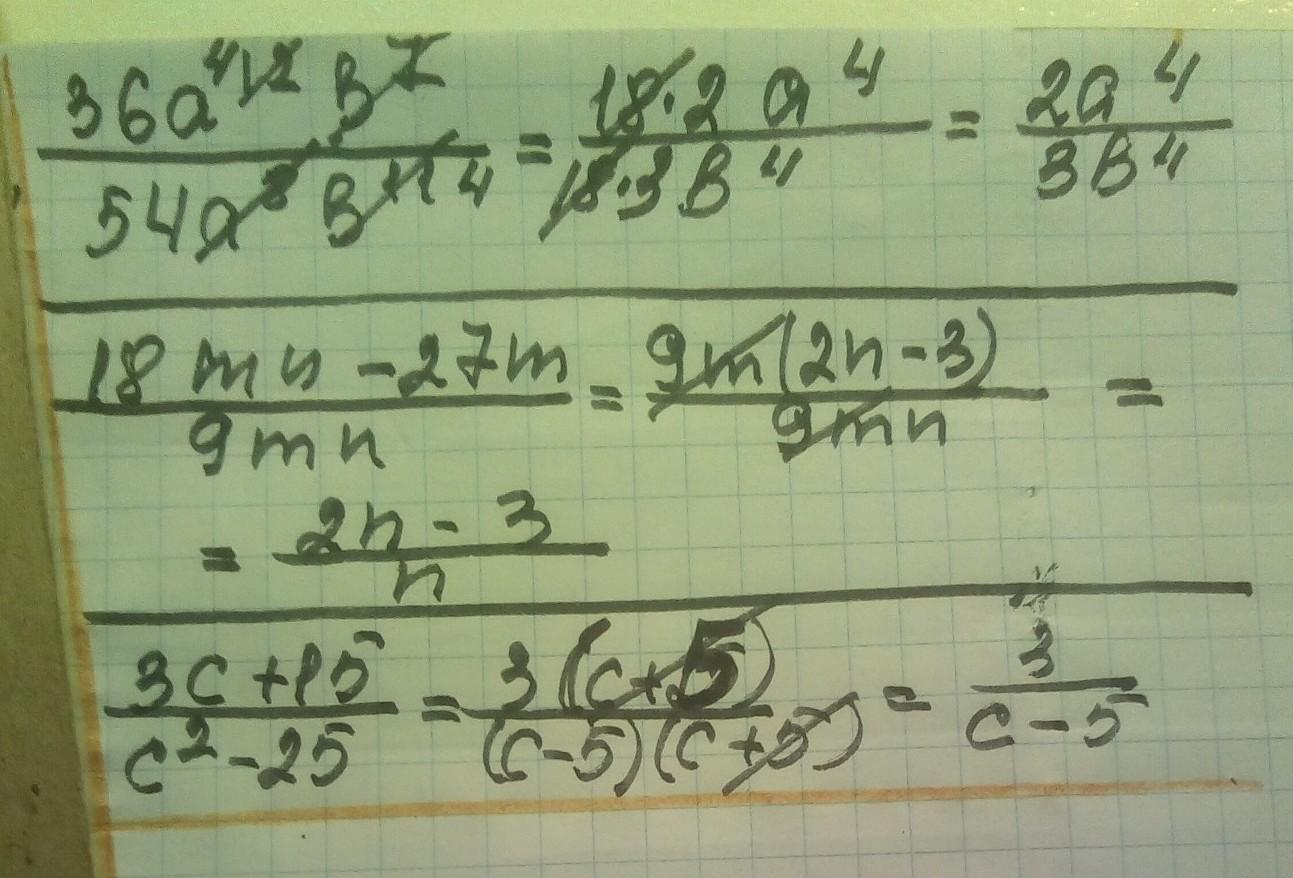 36a⁴¹² в⁷ / 54a⁸ в¹¹ 4 = 18·2 a⁴ / 18·3 в⁴ = 2a⁴ / 3в⁴
18 mn - 27m / 9mn = 9m(2n - 3) / 9mn =
= 2n - 3 / n
3c + 15 / c² - 25 = 3(c + 5) / (c - 5)(c + 5) = 3 / c - 5